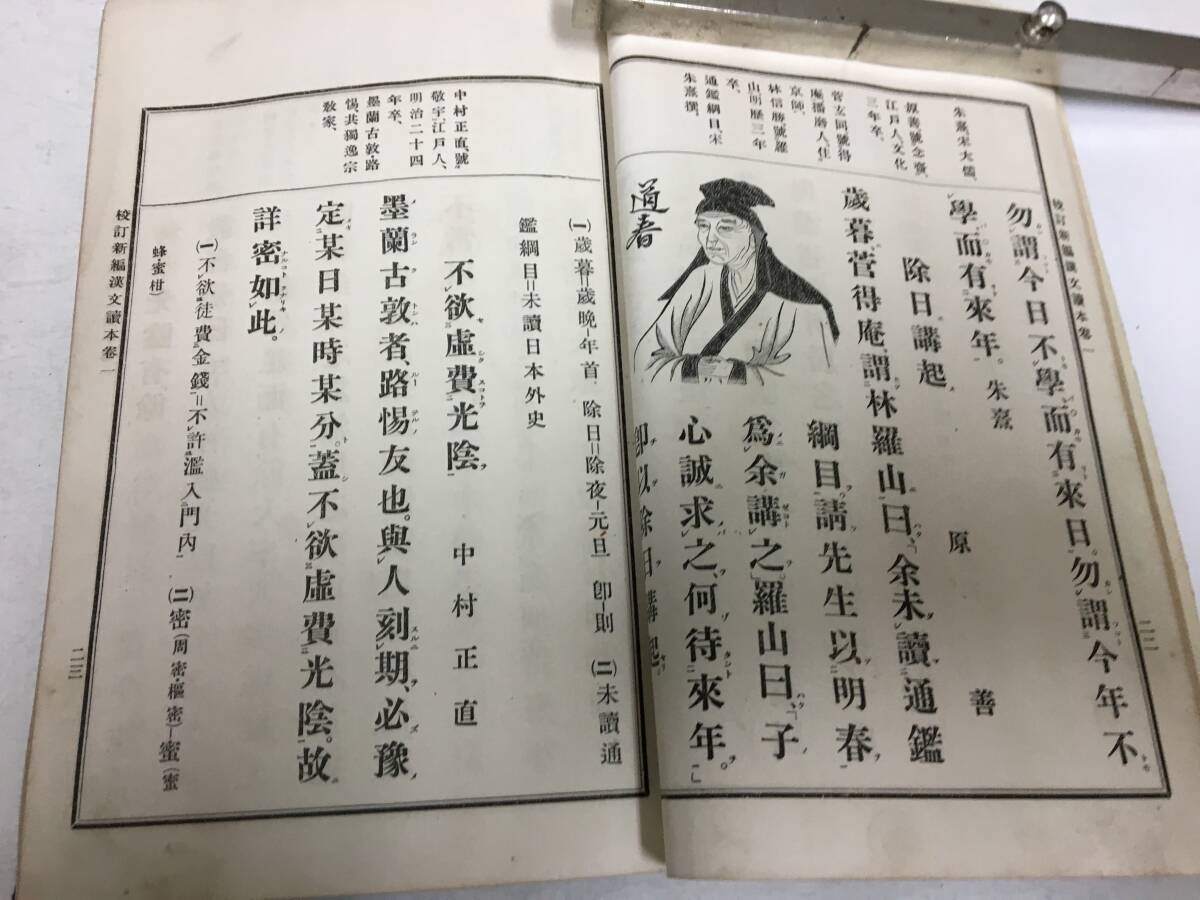 校訂新編漢文讀本卷一
二二
朱熹、宋大儒、
原善號念齋、
江戶人、文化
三年卒、
菅玄同號得
庵播磨人、住
京師、
林信勝號羅
山、明曆三年
卒、
通鑑綱目、宋
朱熹撰、
勿謂今日不學而有來日。勿謂今年不
學而有來年。朱熹
除日講起 原善
歲暮、菅得庵謂林羅山曰、余未讀通鑑
綱目、請先生以明春
爲余講之。羅山曰、「子
心誠求之、何待來年。」
卽以除日講起。
道春
(一)歲暮=歲晚-年首 除日=除夜-元旦 卽-則 (二)未讀通
鑑綱目=未讀日本外史
不欲虛費光陰 中村正直
墨蘭古敦者、路惕友也。與人刻期、必豫
定某日某時某分。蓋不欲虛費光陰。故
詳密如此。
(一)不欲徒費金錢=不許濫入門內 (二)密(周密・樞密)-蜜(蜜
蜂・蜜柑)
中村正直、號
敬宇、江戶人、
明治二十四
年卒、
墨蘭古敦路
惕共獨逸宗
敎家、
校訂新編漢文讀本卷一
二三